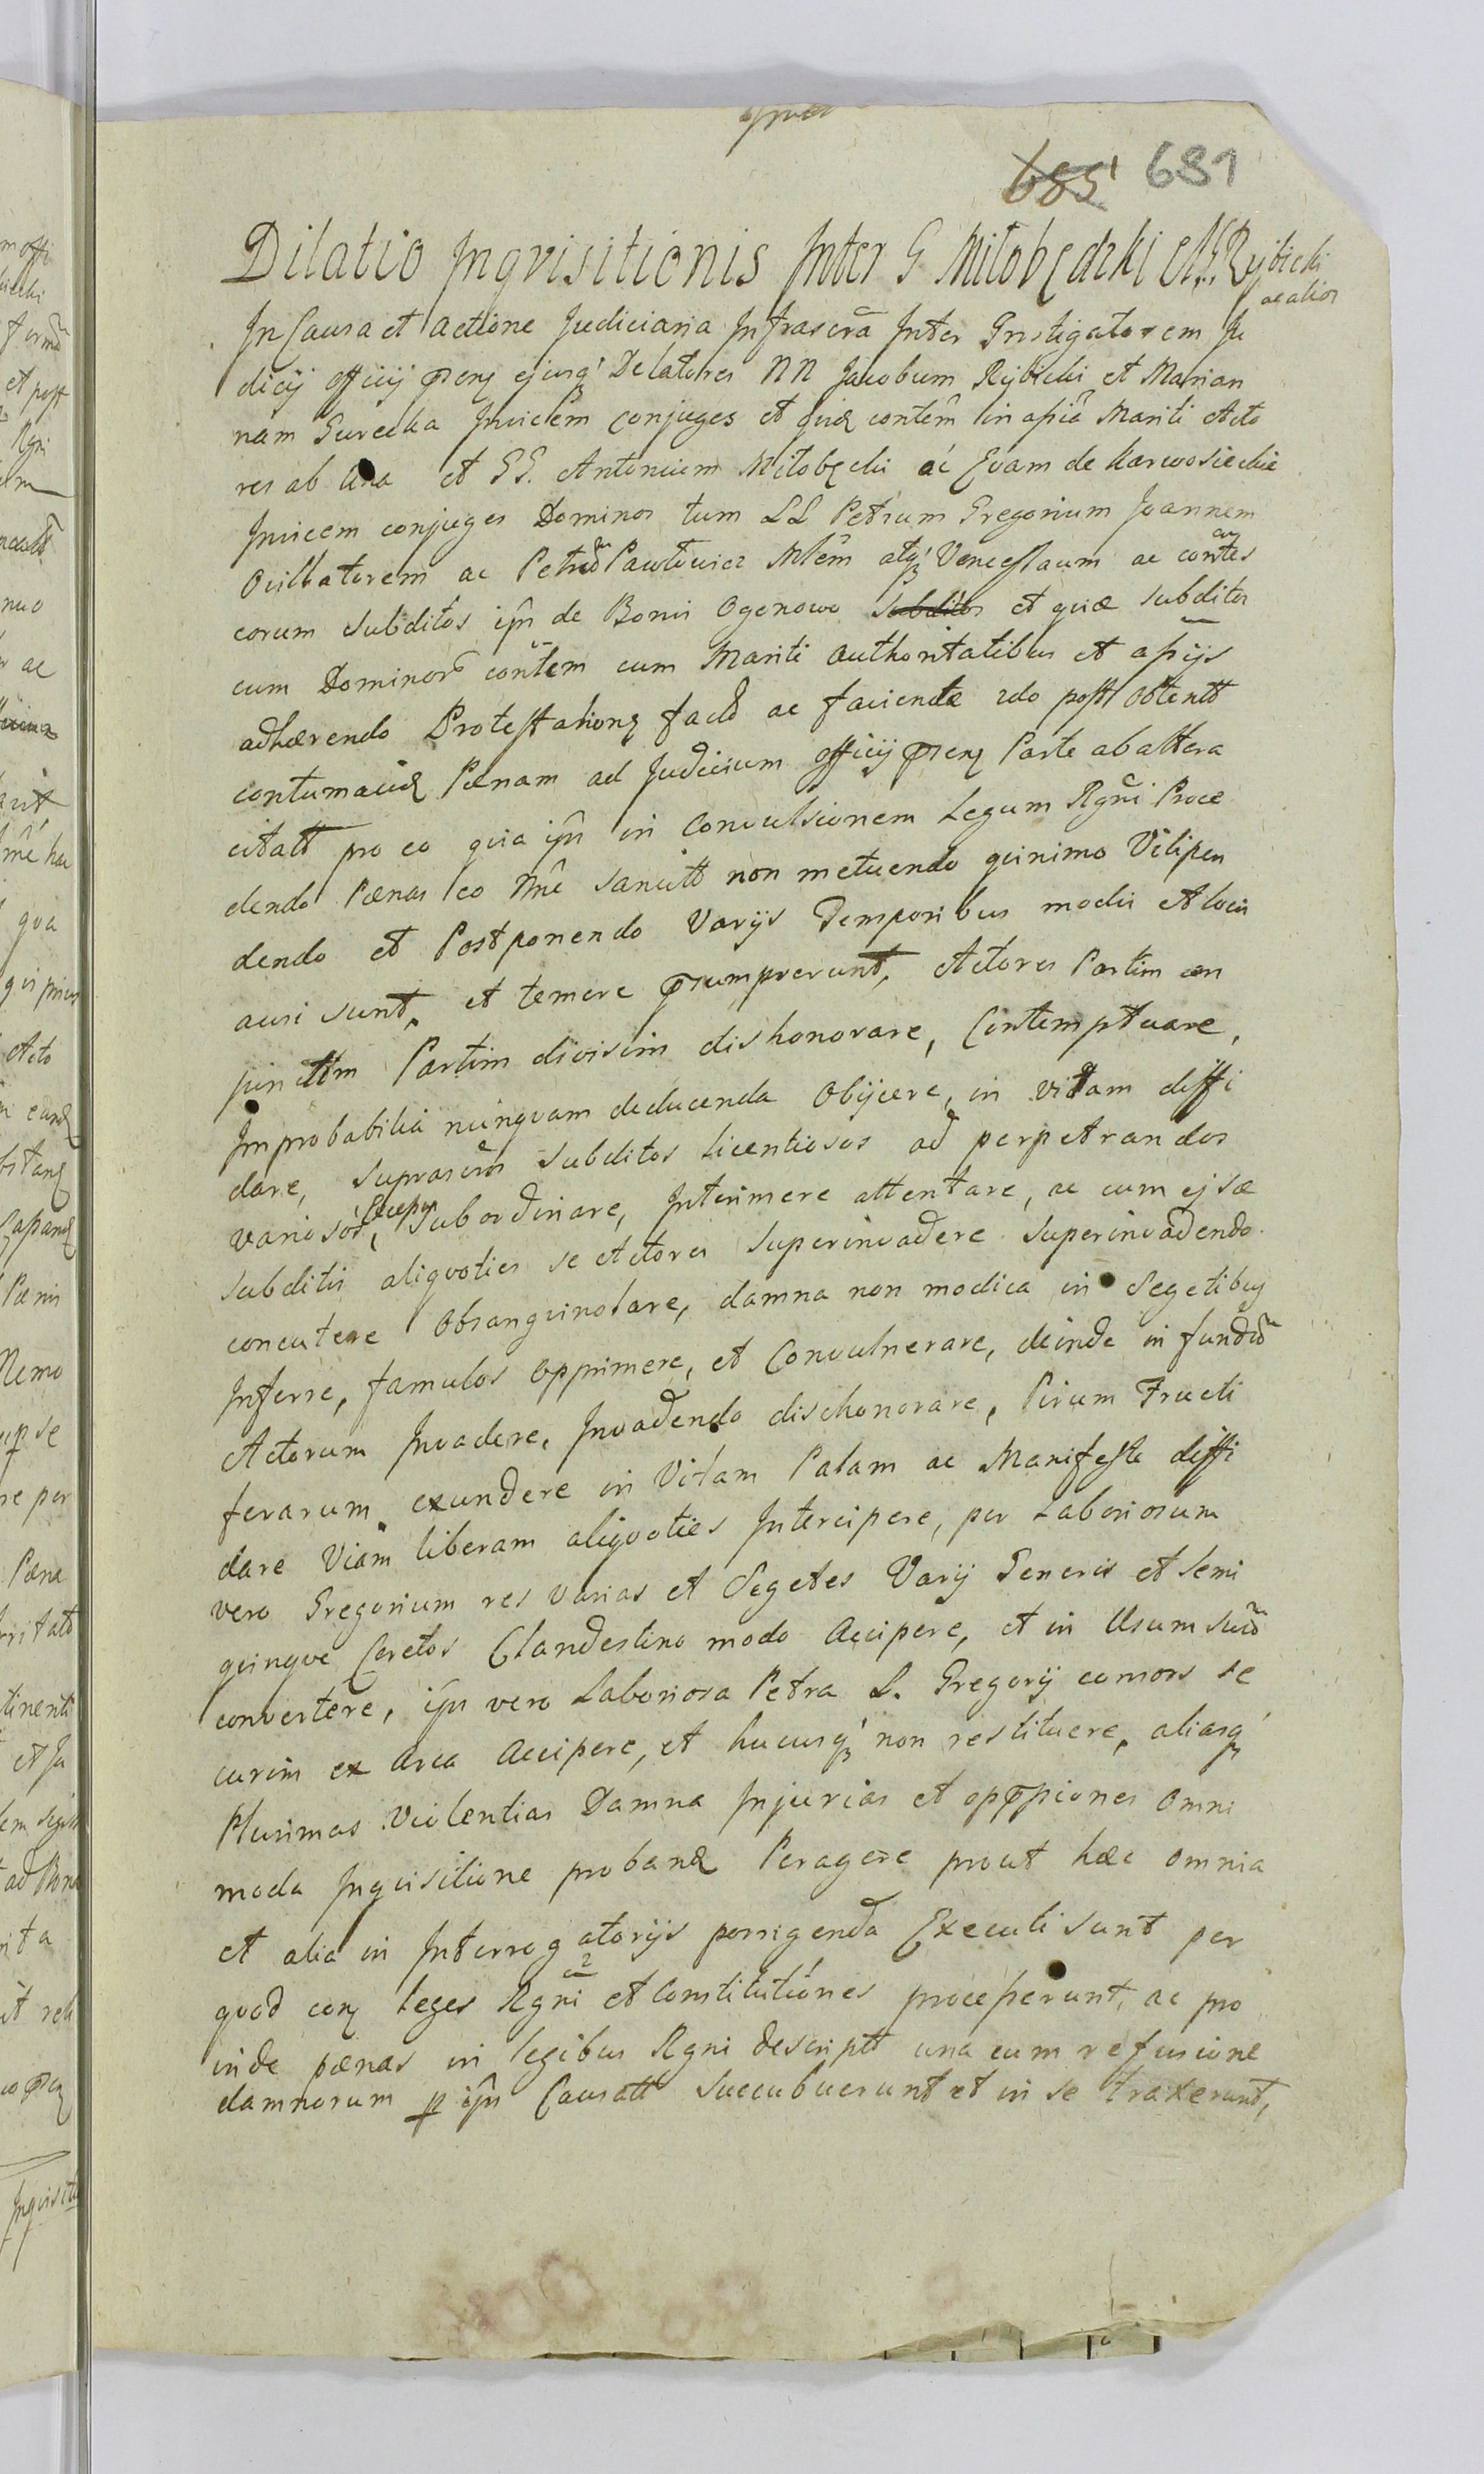 685 681
Dilatio Inqvisitionis Inter G Miłobędzki et NN Rybicki
ac alios
In Causa et actione Judiciaria Infrascrã Inter Instigatorem Ju
dicij officij pnẽ ejusq₃ Delatores NN Jacobum Rybicki et Marian
nam Gurecka Invicem conjuges et hinc contẽm in assiã Mariti Acto
res ab una et GG. Antonium Miłobęcki ac Evam de Karwosieckie
Invicem conjuges Dominos tum LL Petrum Gregorium Joannem
Ovilliatorem ac Petrũ Pawłowicz Mlẽm atq₃ Venceslaum ac contes
eorum subditos ipn de Bonis Ogonowo subditos et qvia subditos
cum Dominorũ contem cum Mariti authoritatibus et assijs
adhærendo Protestationẽ factæ ac faciendæ 2do post obtentt
contumaciæ Pænam ad Judicium officij pnẽ Parte ab altera
citatt pro eo qvia ipn in Convulsionem Legum Rgni Proce
dendo Pænas eo nnẽ sancitt non metuendo qvinimo Vilipen
dendo et Postponendo Varijs Temporibus modis et locis
ausi sunt, et temere præsumpserunt, Actores Partim con
junctim Partim divisim dishonorare, Contemptuare,
Improbabilia nunqvam deducenda Objicere, in vitam diffi
dare, suprascros subditos licentiosos ad perpetrandos
variosos, Excessus subordinare, Interimere attentare, ac cum ejsæ
subditis aliqvoties se Actores superinvadere superinvadendo
concutere obsangvinolare, damna non modica in Segetibus
Inferre, famulos opprimere, et Convulnerare, deinde in fundũ
Actorum Invadere, Invadendo dischonorare, Pirum Fructi
ferarum exundere in Vitam Palam ac Manifeste diffi
dare Viam liberam aliqvoties Intercipere, per Laboriosum
vero Gregorium res varias et Segetes Varij Generis et semi
qvinqve Coretos Clandestino modo Accipere, et in Usum suũ
convertere, ipn vero Laboriosa Petra L. Gregorij consors se
curim ex Area Accipere, et hucusq₃ non restituere, aliasq₃
Plurimas Violentias Damna Injurias et oppssiones omni
moda Inqvisitione proband Peragere prout hæc omnia
et alia in Interrogatorijs porrigenda Executi sunt per
qvod conẽ leges Rgni et Constitutiones processerunt, ac pro
inde pænas in legibus Rgni descriptt una cum refusione
damnorum p ipn Causatt succubuerunt et in se traxerunt,